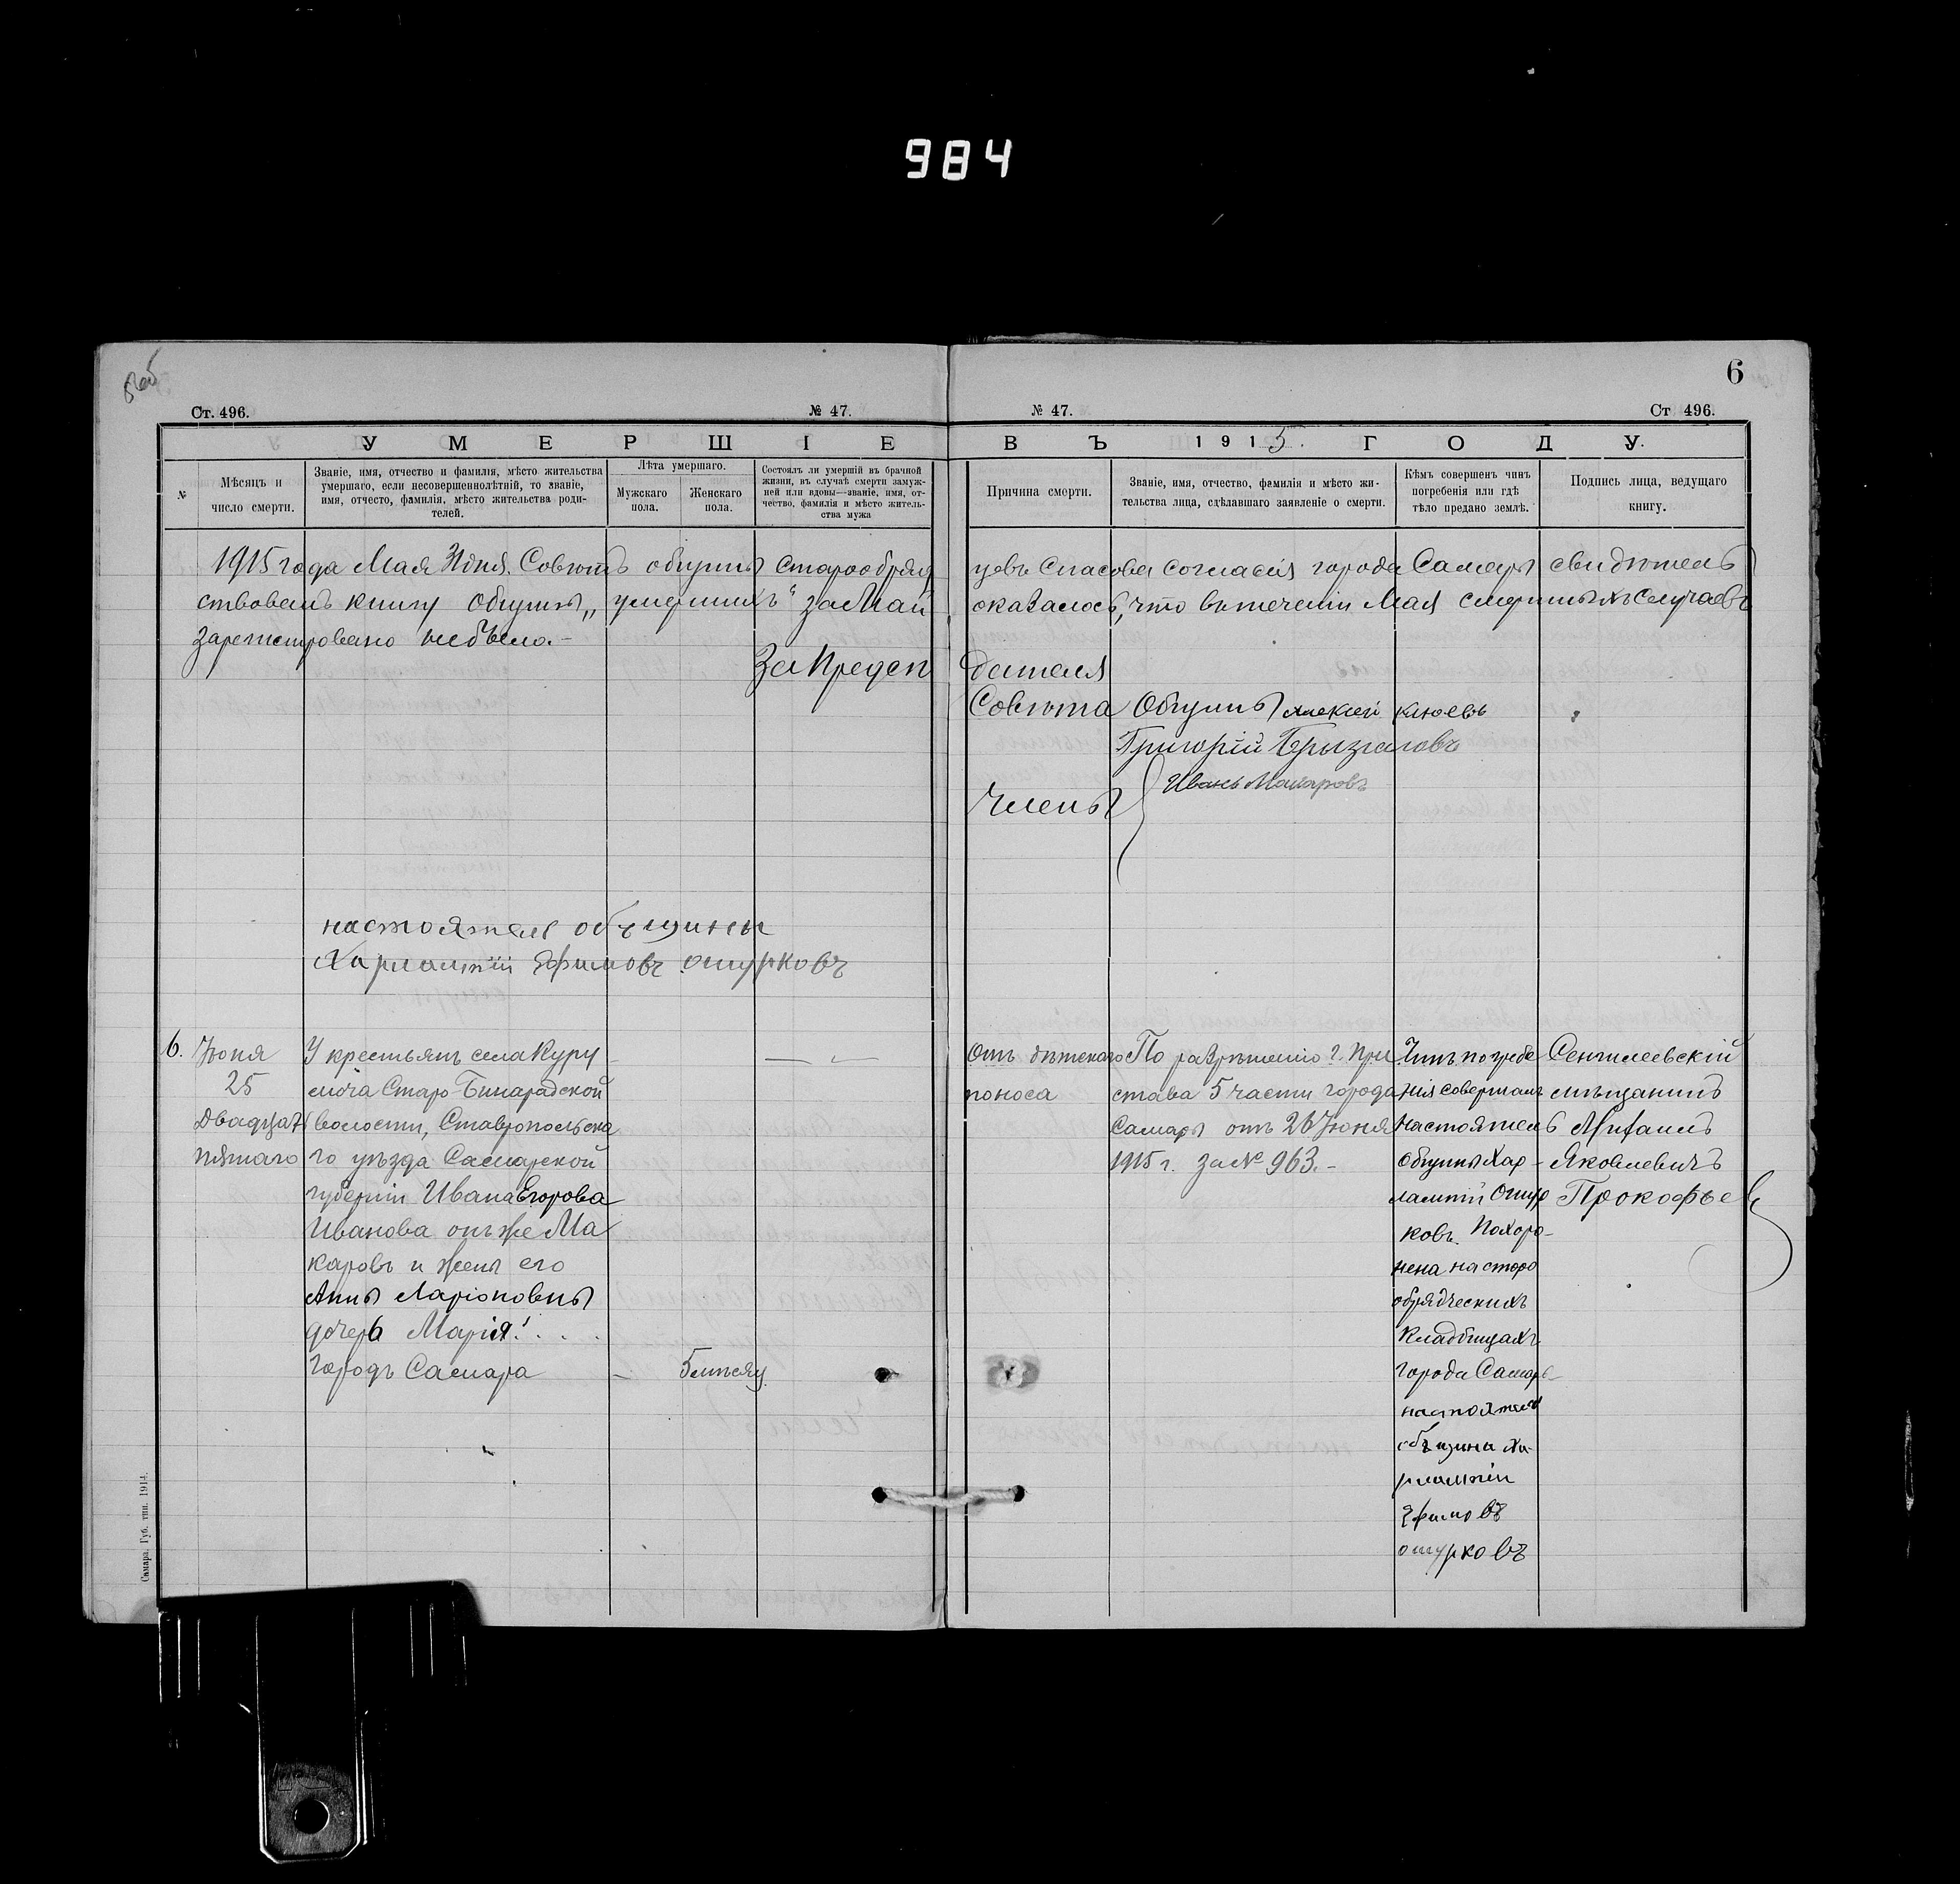 984
6
Ст. 496.
№ 47.
№ 47.
Ст 496.
УМЕРШІЕ ВЪ 1915. ГОДУ.
№
Мѣсяцъ и число смерти.
Званіе, имя, отчество и фамилія, мѣсто жительства
умершаго, если несовершеннолѣтній, то званіе,
имя, отчесто, фамилія, мѣсто жительства роди-
телей.
Лѣта умершаго.
Мужскаго пола.
Женскаго пола.
Состоялъ ли умершій въ брачной
жизни, въ случаѣ смерти замуж-
ней или вдовы—званіе, имя, от-
чество, фамилія и мѣсто житель-
ства мужа
Причина смерти.
Званіе, имя, отчество, фамилія и мѣсто жи-
тельства лица, сдѣлавшаго заявленіе о смерти.
Кѣмъ совершенъ чинъ
погребенія или гдѣ
тѣло предано землѣ.
Подпись лица, ведущаго
книгу.
1915 года Мая 31 дня. Совѣтъ общины старообряд цевъ Спасова согласія города Самары свидѣтель
ствовалъ книгу общины „умершихъ" за Май оказалось, что втеченіи Мая смертныхъ случаевъ
зарегистровано небыло.-
За Предсѣ дателя
Совѣта Общины Алексѣй Клюевъ
Григорій Брызгаловъ
Члены Иванъ Макаровъ
настоятель общины
Харлампій Ефимовъ ошурковъ
6.
Іюня
25
Двадцать
пятаго
У крестьянъ села Куру
моча Старо-Бинарадской
волости, Ставропольска
го уѣзда Самарской
губерніи Ивана Егорова
Иванова онъ же Ма
каровъ и жены его
Анны Ларіоновны
дочерь Марія!...
городъ Самара
5 мѣсяц.
Отъ дѣтскаго
поноса
По разрѣшенію г. При
става 5 части города
Самары отъ 26 Іюня
1915 г. за № 963.-
Чинъ погребе
нія совершалъ
настоятель
общины Хар-
лампій Ошур
ковъ. Похоро-
нена на старо
обрядческихъ
кладбищахъ
города Самары
настоятель
общины Ха-
рлампій
Ефимовъ
ошурковъ
Сенгилеевскій
мѣщанинъ
Михаилъ
Яковлевичъ
Прокофьевъ
Самара. Губ. тип. 1914.